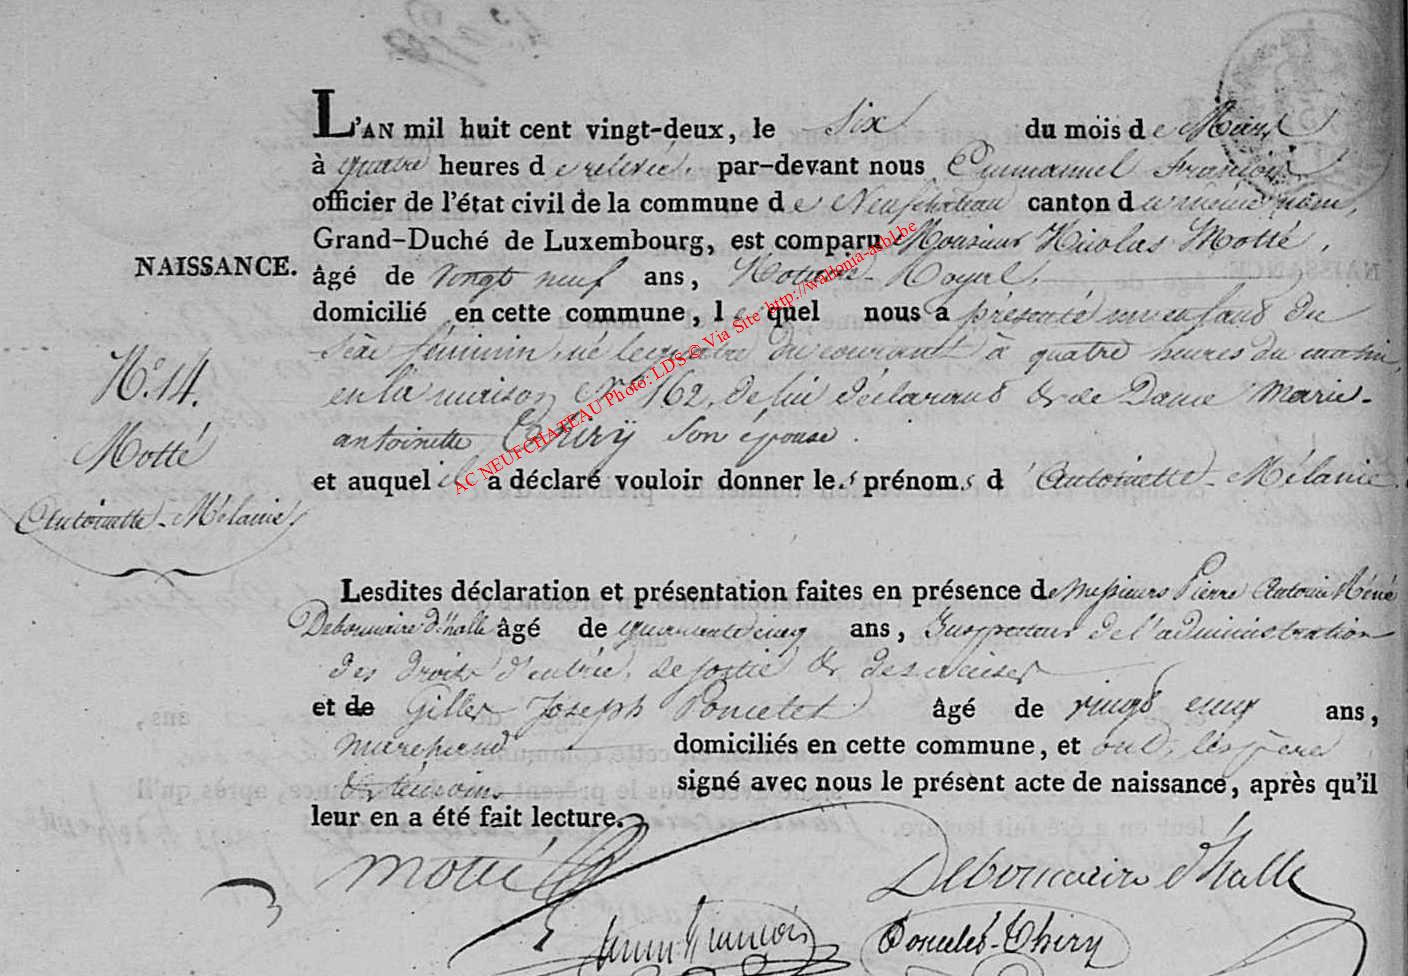 L'AN mil huit cent vingt-deux, le six du mois de Mars
à quatre heures de relevée, par-devant nous Emmanuel François
officier de l'état civil de la commune de Neufchateau canton du même nom,
Grand-Duché de Luxembourg, est comparu Monsieur Nicolas Motté,
NAISSANCE.
âgé de vingt neuf ans, Notaire-Royal,
domicilié en cette commune, lequel nous a présenté un enfant du
Sexe féminin, né le quatre du courant à quatre heures du matin,
en la maison Nº 162, de lui déclarant & de Dame Marie-
antoinette Thiry Son épouse.
et auquel il a déclaré vouloir donner les prénoms d'Antoinette-Mélanie.
Nº 14.
Motté
Antoinette-Mélanie
Lesdites déclaration et présentation faites en présence de Messieurs Pierre Antoine Réné
Debonnaire d'halle âgé de quarante cinq ans, Inspecteur de l'administration
des droits d'entrée, de sortie & des accises
et de Gilles Joseph Poncelet âgé de vingt cinq ans,
marchand domiciliés en cette commune, et ont, les père
& temoins signé avec nous le présent acte de naissance, après qu'il
leur en a été fait lecture.
Motté
Debonnaire d'halle
François
Poncelet-Thiry
AC NEUFCHATEAU Photo: LDS © Via Site http://wallonia-asbl.be